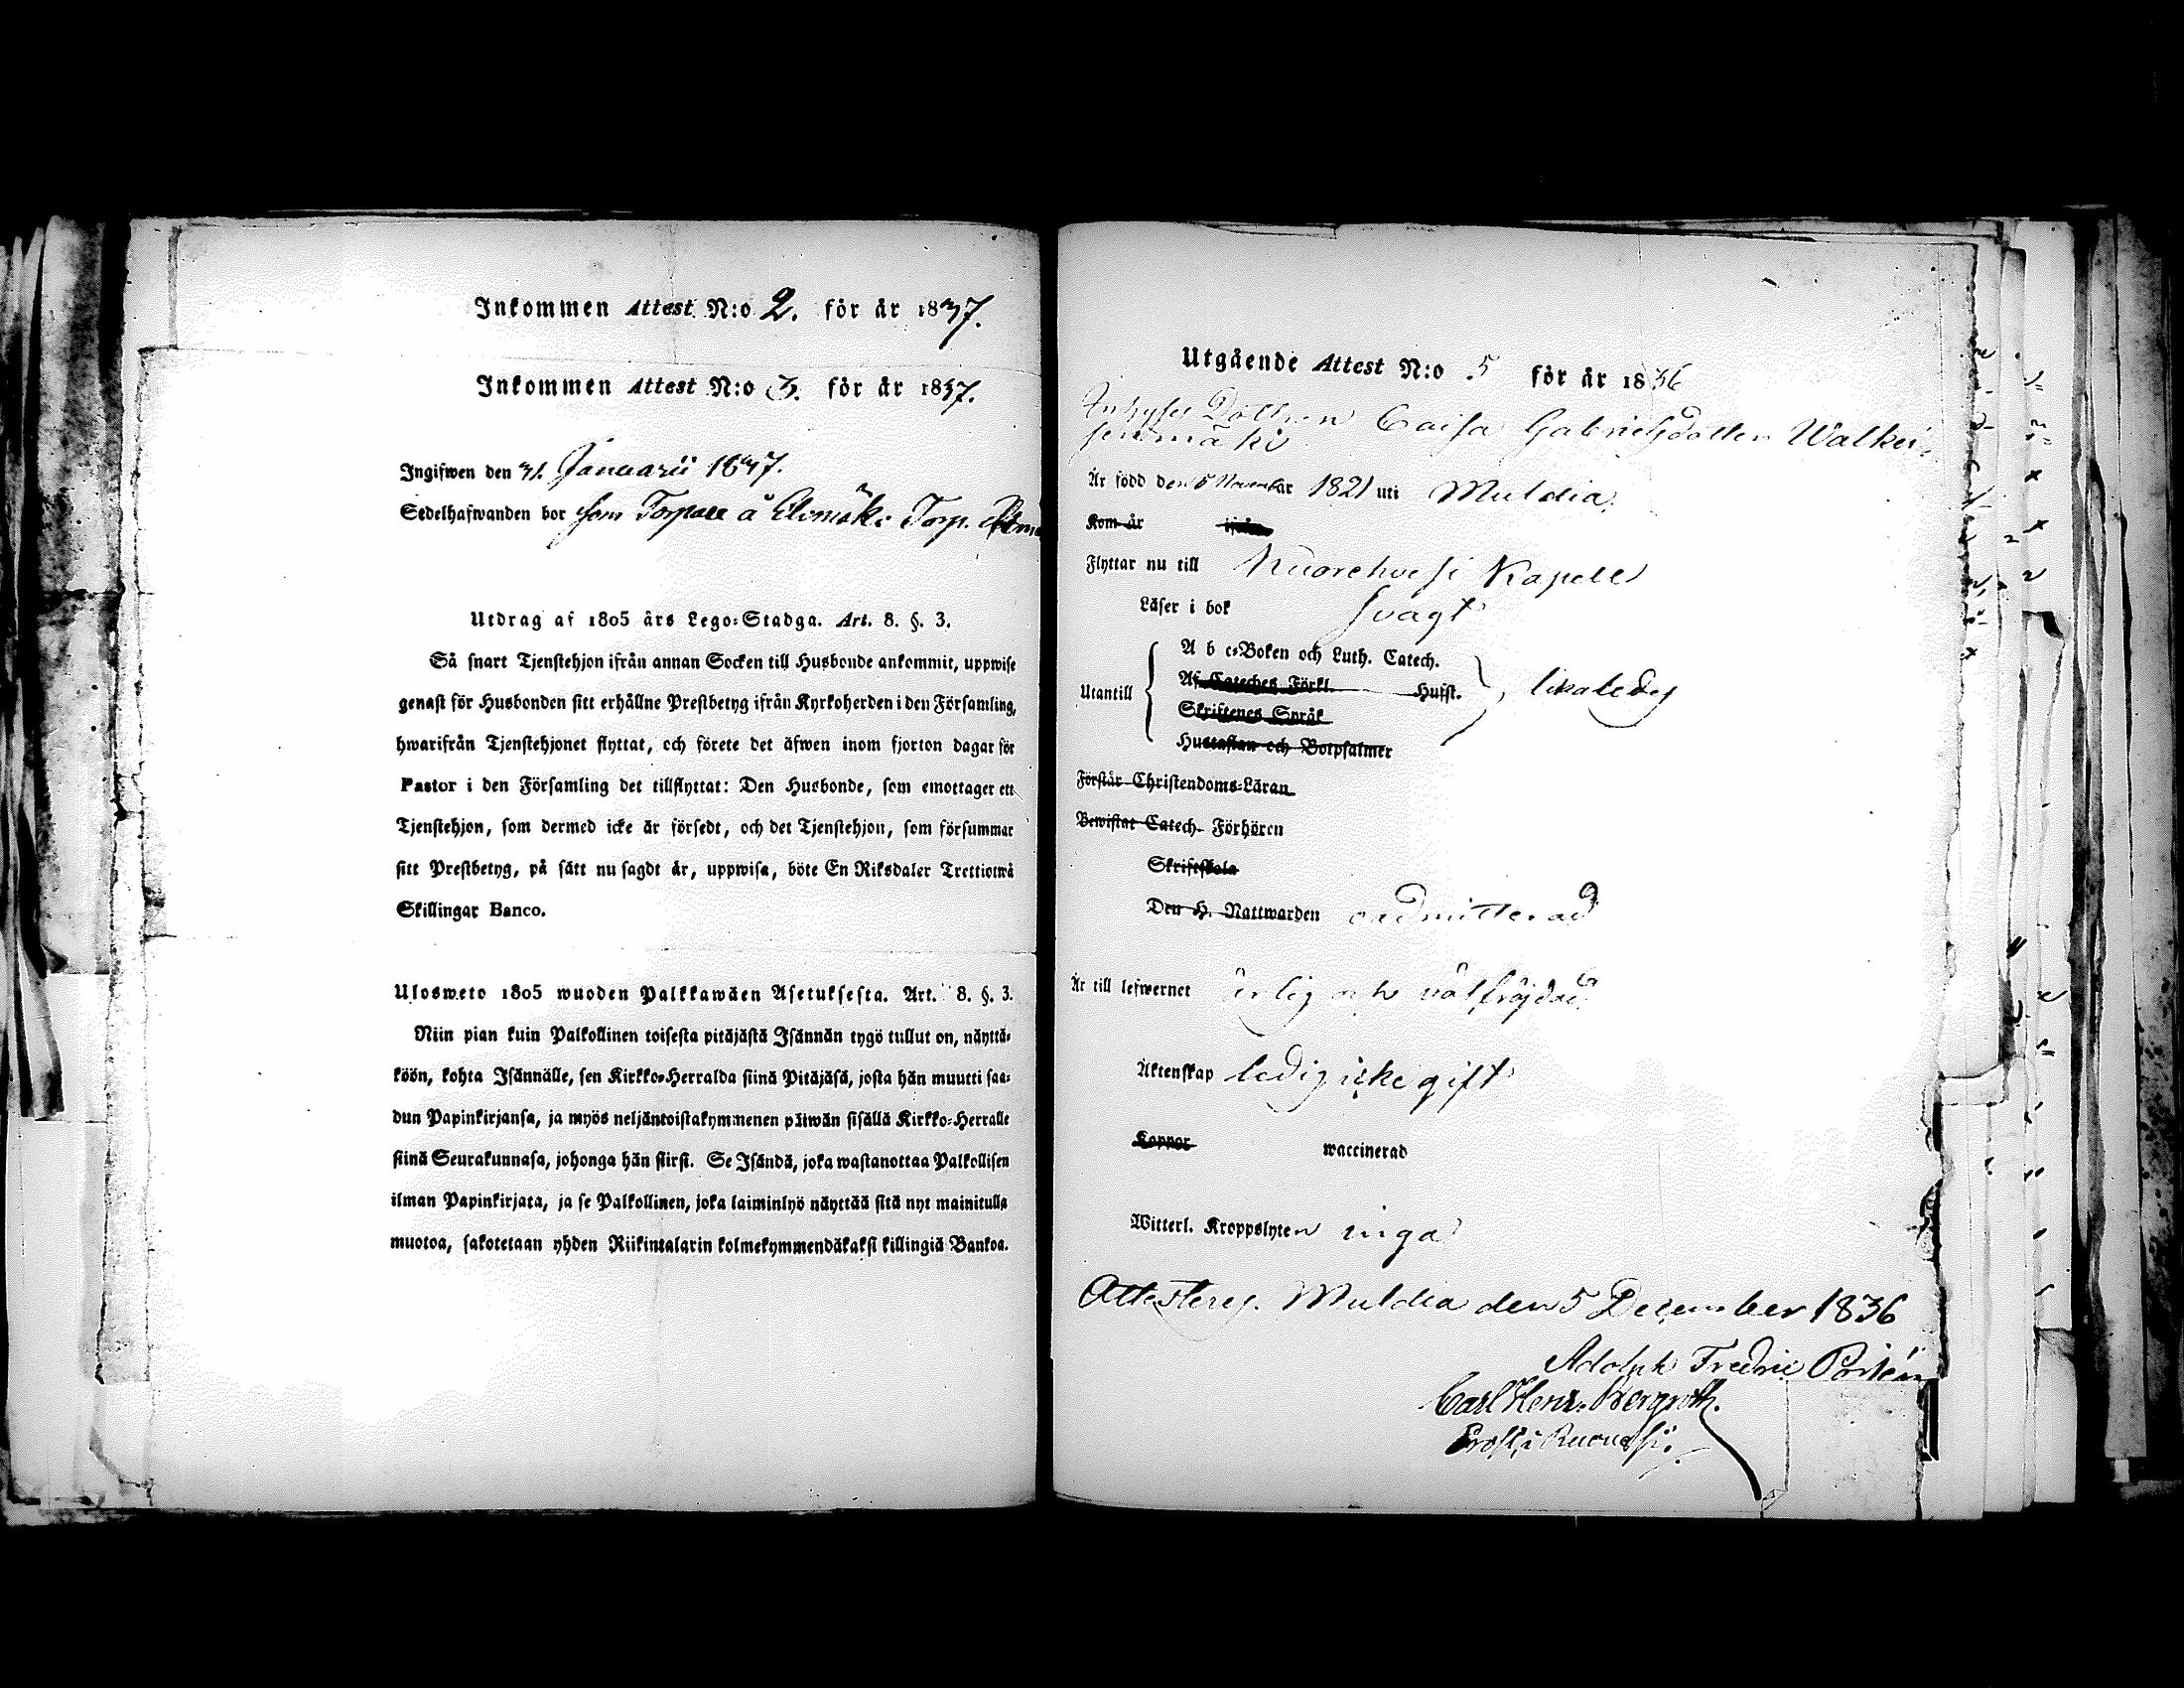 Inkommen Attest N:o 2. för år 1837.
Inkommen Attest N:o 3. för år 1837.
Ingifwen den 31. Januarii 1837.
Sedelhafwanden bor som Torpare å Torp.
Utdrag af 1805 års Lego-Stadga. Art. 8. §. 3.
Så snart Tjenstehjon ifrån annan Socken till Husbonde ankommit, uppwise
genast för Husbonden sitt erhållne Prestbetyg ifrån Kyrkoherden i den Församling,
hwarifrån Tjenstehjonet flyttat, och förete det äfwen inom fjorton dagar för
Pastor i den Församling det tillflyttat: Den Husbonde, som emottager ett
Tjenstehjon, som dermed icke är försedt, och det Tjenstehjon, som försummar
sitt Prestbetyg, på sätt nu sagdt är, uppwisa, böte En Riksdaler Trettiotwå
Skillingar Banco.
Ulosweto 1805 wuoden Palkkawäen Asetuksesta. Art. 8. §. 3.
Niin pian kuin Palkollinen toisesta pitäjästä Isännän tygö tullut on, näyttä-
köön, kohta Isännälle, sen Kirkko-Herralda siinä Pitäjäsä, josta hän muutti saa-
dun Papinkirjansa, ja myös neljäntoistakymmenen päiwän sisällä Kirkko-Herralle
siinä Seurakunnasa, johonga hän siirsi. Se Isändä, joka wastanottaa Palkollisen
ilman Papinkirjata, ja se Palkollinen, joka laiminlyö näyttää sitä nyt mainitulla
muotoa, sakotetaan yhden Riikintalarin kolmekymmendäkaksi killingiä Bankoa.
Utgående Attest N:o 5 för år 1836
Inhyses Dottren Caisa Gabrielsdotter Walkei-
senmäki
Är född den 5 November 1821 uti Muldia.
Kom år ifrån
Flyttar nu till Kuorehvesi Kapell
Läser i bok svagt
A b c-Boken och Luth. Catech.
Utantill Af Cateches Förkl. Hufst. likaledes
Skriftenes Språk
Hustaflan och Botpsalmer
Förstår Christendoms-Läran
Bewistat Catech. Förhören
Skriftskola
Den H. Nattwarden oadmitterad
Är till lefwernet ärlig och välfrejdad
Äktenskap ledig icke gift
Koppor waccinerad
Witterl. Kroppslyten inga
Attesteras. Muldia den 5 December 1836
Adolph Fredric
Carl Henr. Bergroth.
Prost i Ruovesi.